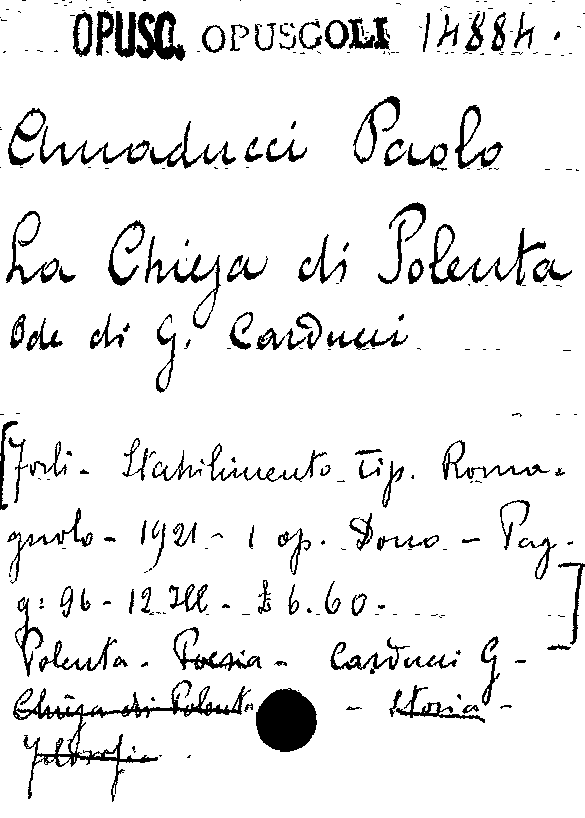 OPUSC. OPUSCOLI 14884.
Amaducci Paolo
La Chiesa di Polenta
Ode di G. Carducci
[Forlì - Stabilimento Tip. Roma-
gnolo - 1921 - 1 op. Dono - Pag-
g: 96 - 12 Ill - £ 6.60 - ]
Polenta - Poesia - Carducci G -
Chiesa di Polenta - Storia -
Filosofia